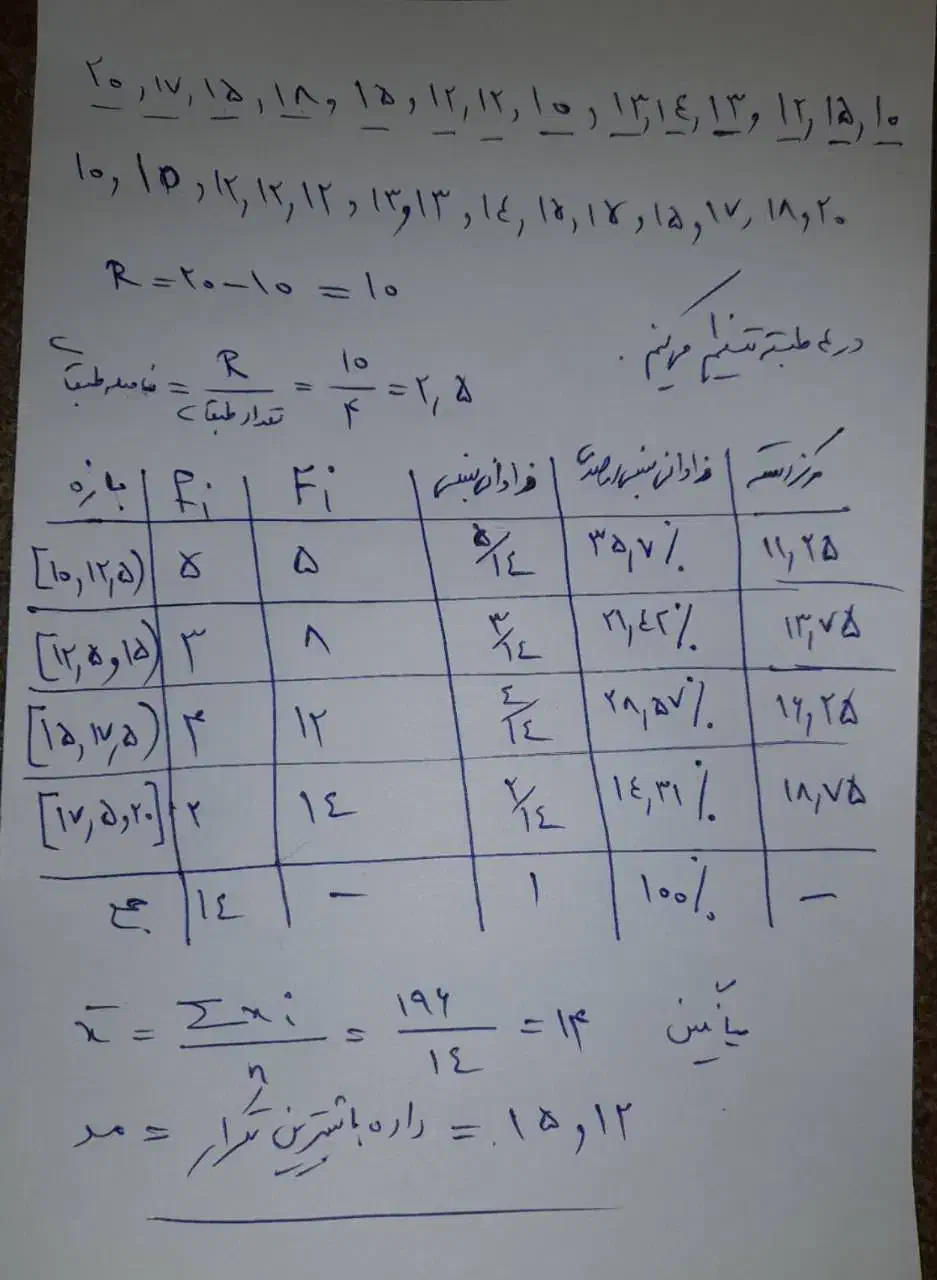 ۲۰, ۱۷, ۱۵, ۱۸, ۱۵, ۱۲, ۱۲, ۱۰, ۱۳, ۱٤, ۱۳, ۱۲, ۱۵, ۱۰
۱۰, ۱۰, ۱۲, ۱۲, ۱۲, ۱۳, ۱۳, ۱٤, ۱۵, ۱۵, ۱۵, ۱۷, ۱۸, ۲۰
R = ۲۰ − ۱۰ = ۱۰
در ۴ طبقه تقسیم میکنیم.
فاصله طبقات = R / تعداد طبقات = ۱۰ / ۴ = ۲,۵
بازه | fi | Fi | فراوانی نسبی | فراوانی نسبی درصدی | مرکز دسته
[۱۰, ۱۲,۵) | ۵ | ۵ | ۵/۱٤ | ۳۵,۷٪ | ۱۱,۲۵
[۱۲,۵, ۱۵) | ۳ | ۸ | ۳/۱٤ | ۲۱,٤۲٪ | ۱۳,۷۵
[۱۵, ۱۷,۵) | ۴ | ۱۲ | ٤/۱٤ | ۲۸,۵۷٪ | ۱۶,۲۵
[۱۷,۵, ۲۰] | ۲ | ۱٤ | ۲/۱٤ | ۱٤,۳۱٪ | ۱۸,۷۵
جمع | ۱٤ | − | ۱ | ۱۰۰٪ | −
x̄ = Σxi / n = ۱۹۶ / ۱٤ = ۱۴ میانگین
مد = داده با بیشترین تکرار = ۱۵, ۱۲